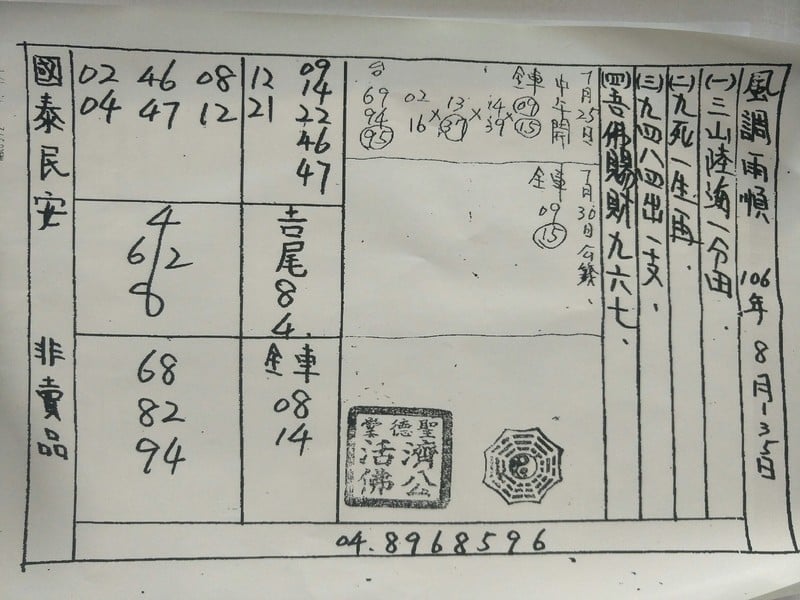 風調雨順 106年8月1-3.5日
(一)三山陸海一分田.
(二)九死一生一再.
(三)九四八四出一支.
(四)吾佛賜財九六七.
7月25日
中午開
全車
09
15
14
39
13
37
02
16
×
×
×
台
69
94
95
7月30日公錢.
全車
09
15
聖德堂
濟公活佛
12 09
21 14
22
46
47
吉尾84.
全車
08
14
02 46 08
04 47 12
4
6/2
8
68
82
94
國泰民安 非賣品
04.8968596